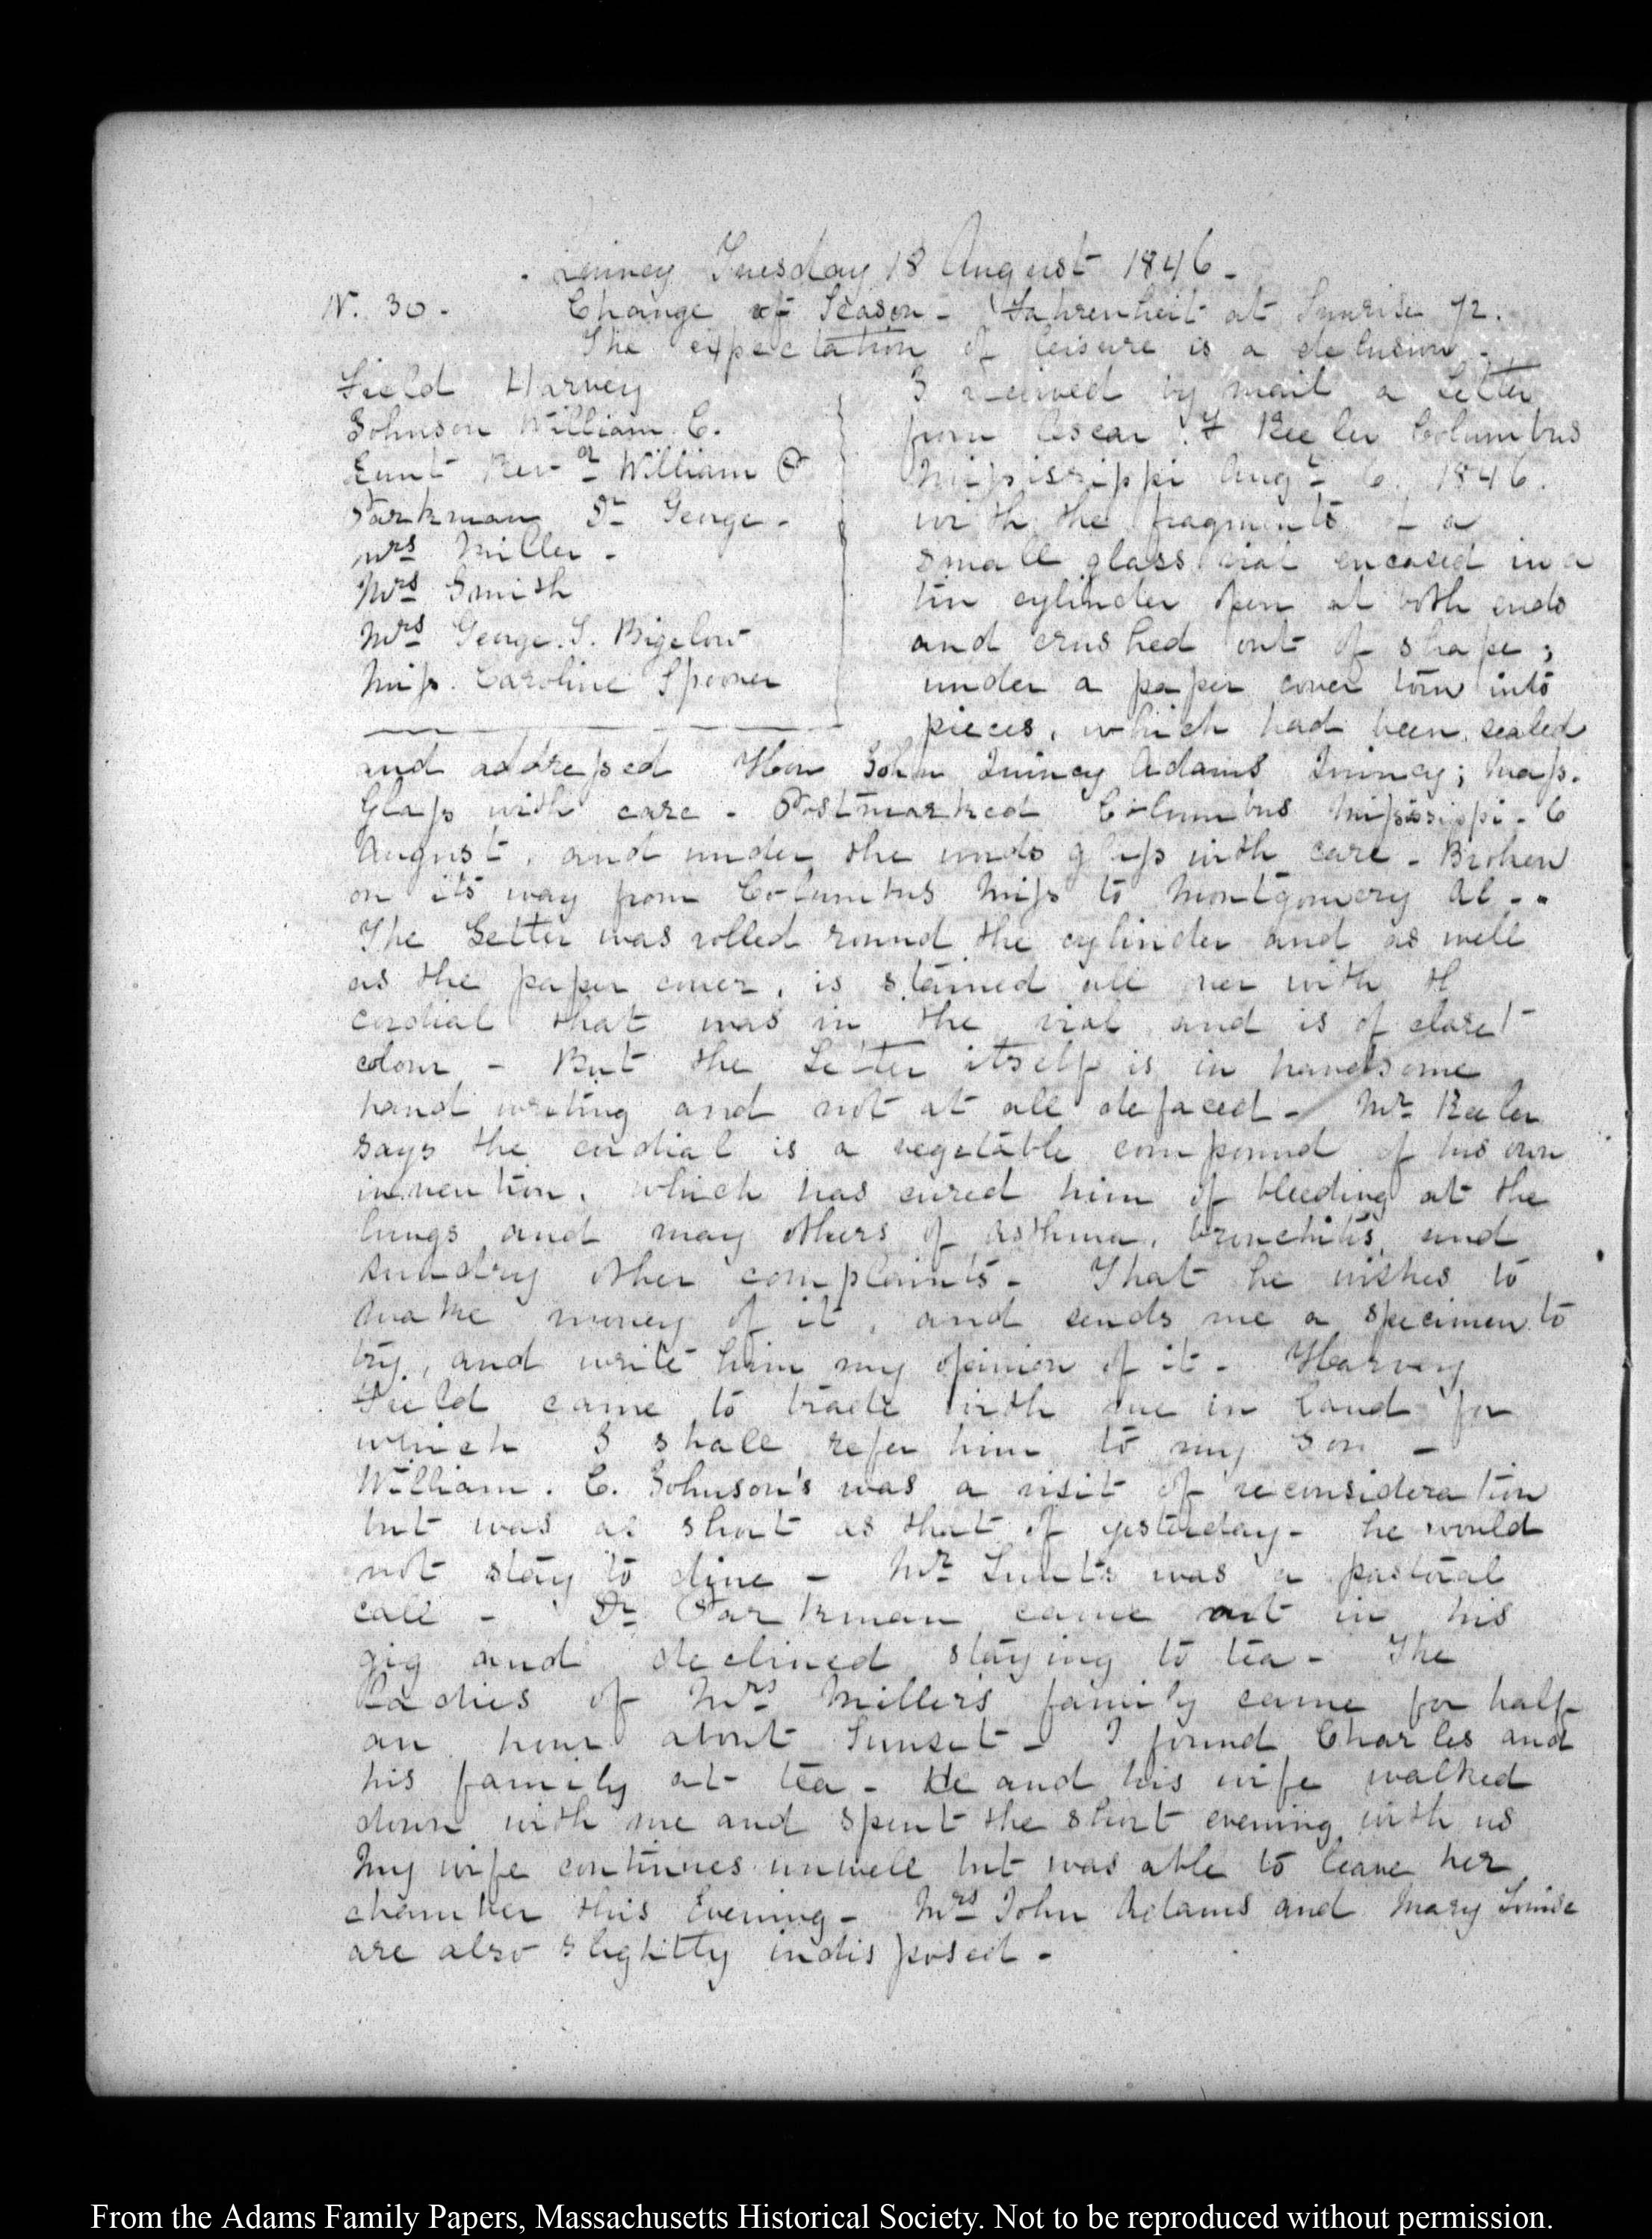 Quincy Tuesday 18 August 1846.
IV. 30. Change of Season - Fahrenheit at Sunrise 72.
The expectation of leisure is a delusion.
Field Harvey
Johnson William C.
Lunt Revd William P
Parkman Dr George -
Mrs Miller -
Mrs Smith
Mrs George. T. Bigelow
Miss. Caroline Spooner
I received by mail a Letter
from Oscar. F Keeler Columbus
Mississippi Augt 6. 1846.
with the fragments of a
small glass vial encased in a
tin cylinder open at both ends
and crushed out of shape;
under a paper cover torn into
pieces, which had been sealed
and addressed Hon John Quincy Adams Quincy; Mass.
Glass with care - Postmarked Columbus Mississippi - 6
August, and under the words glass with care - Broken
on its way from Columbus Miss to Montgomery Al - -
The Letter was rolled round the cylinder and as well
as the paper cover, is stained all over with th
cordial that was in the vial and is of claret
colour - But the Letter itself is in handsome
hand writing and not at all defaced - Mr Keeler
says the cordial is a vegetable compound of his own
invention, which has cured him of bleeding at the
lungs and may others of asthma, bronchitis, and
sundry other complaints - That he wishes to
make money of it, and sends me a specimen to
try, and write him my opinion of it - Harvey
Field came to trade with me in land for
which I shall refer him to my Son -
William. C. Johnson's was a visit of reconsideration
but was as short as that of yesterday - he would
not stay to dine - Mr Lunt's was a pastoral
call - Dr Parkman came out in his
gig and declined staying to tea - The
Ladies of Mrs Millers family came for half
an hour about Sunset - I found Charles and
his family at tea - He and his wife walked
down with me and spent the short evening with us
My wife continues unwell but was able to leave her
chamber this Evening - Mrs John Adams and Mary Louisa
are also slightly indisposed -
From the Adams Family Papers, Massachusetts Historical Society. Not to be reproduced without permission.